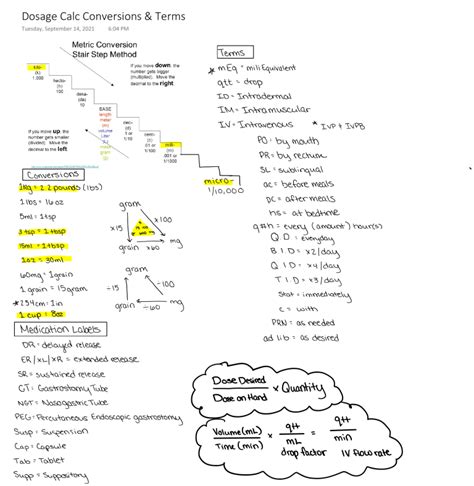 Dosage Calc Conversions & Terms
Tuesday, September 14, 2021 6:04 PM
Metric Conversion
Stair Step Method
If you move down, the
number gets bigger
(multiplied). Move the
decimal to the right
kilo-
(k)
1,000
hecto-
(h)
100
deka-
(da)
10
BASE
length
meter
(m)
volume
liter
(L)
mass
gram
(g)
deci-
(d)
1 or
1/10
centi-
(c)
.01 or
1/100
milli-
(m)
.001 or
1/1000
micro-
1/10,000
If you move up, the
number gets smaller
(divided). Move the
decimal to the left
Conversions
1Kg = 2.2 pounds (lbs)
1 lbs = 16 oz
5ml = 1tsp
3 tsp = 1 tbsp
15ml = 1 tbsp
1oz = 30ml
60mg = 1grain
1 grain = 15gram
*2.54cm = 1in
1 cup = 8oz
gram
x15 x100
grain x60 mg
gram
÷15 ÷100
grain ÷60 mg
Medication Labels
DR = delayed release
ER/XL/XR = extended release
SR = sustained release
GT = Gastrostomy Tube
NGT = Nasogastric Tube
PEG = Percutaneous Endoscopic gastrostomy
Susp = Suspension
Cap = Capsule
Tab = Tablet
Supp = Suppository
Terms
* mEq = miliEquivalent
gtt = drop
ID = Intradermal
IM = Intramuscular
IV = Intravenous * IVP + IVPB
PO = by mouth
PR = by rectum
SL = sublingual
ac = before meals
pc = after meals
hs = at bedtime
q#h = every (amount) hour(s)
Q.D = everyday
B.I.D = x2/day
Q.I.D = x4/day
T.I.D = x3/day
Stat = immediately
c = with
PRN = as needed
ad lib = as desired
Dose Desired
Dose on Hand x Quantity
Volume (mL) x gtt = gtt
Time (min) mL min
drop factor IV flow rate